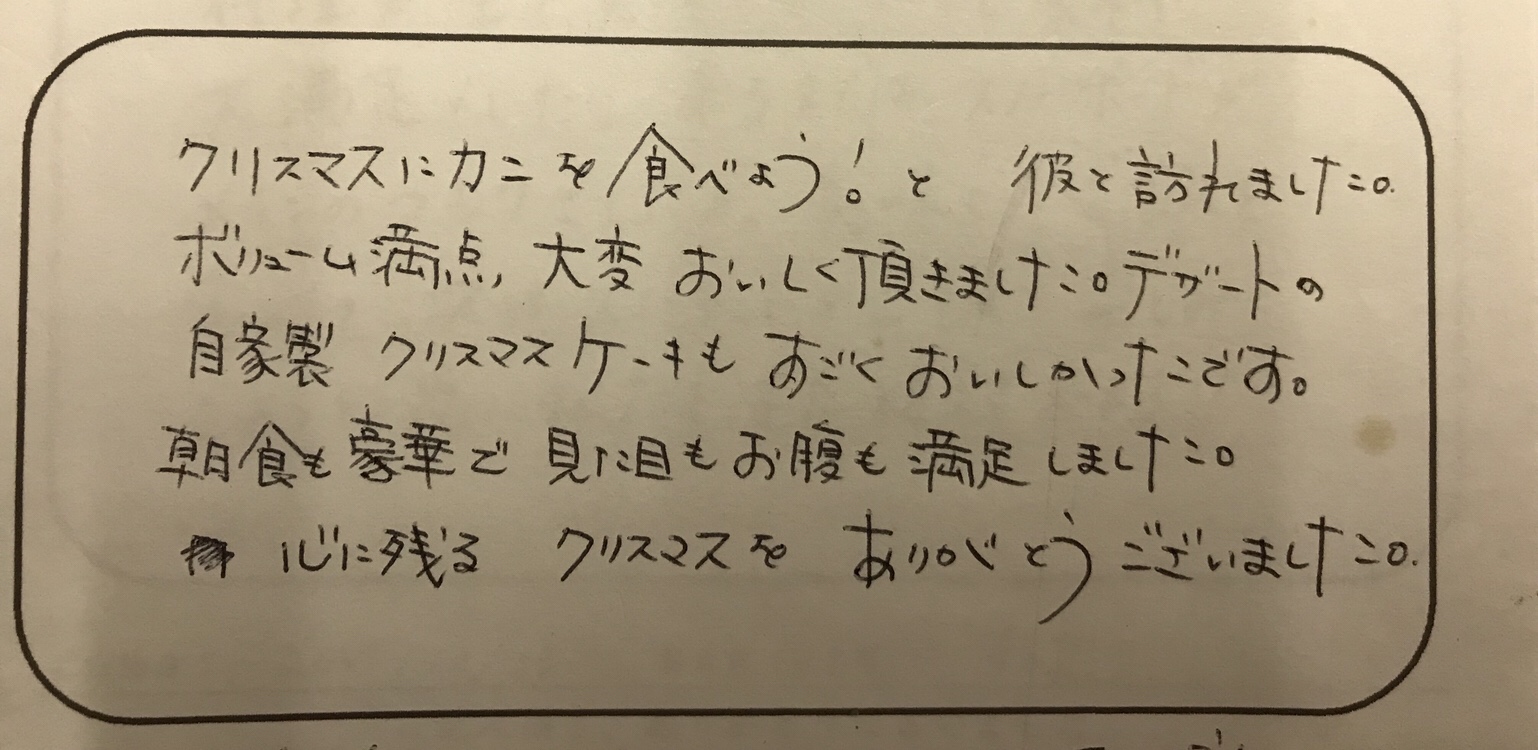 クリスマスにカニを食べよう！と 彼と訪れました。
ボリューム満点、大変 おいしく頂きました。デザートの
自家製 クリスマスケーキも すごく おいしかったです。
朝食も豪華で 見た目もお腹も満足しました。
心に残る クリスマスを ありがとうございました。